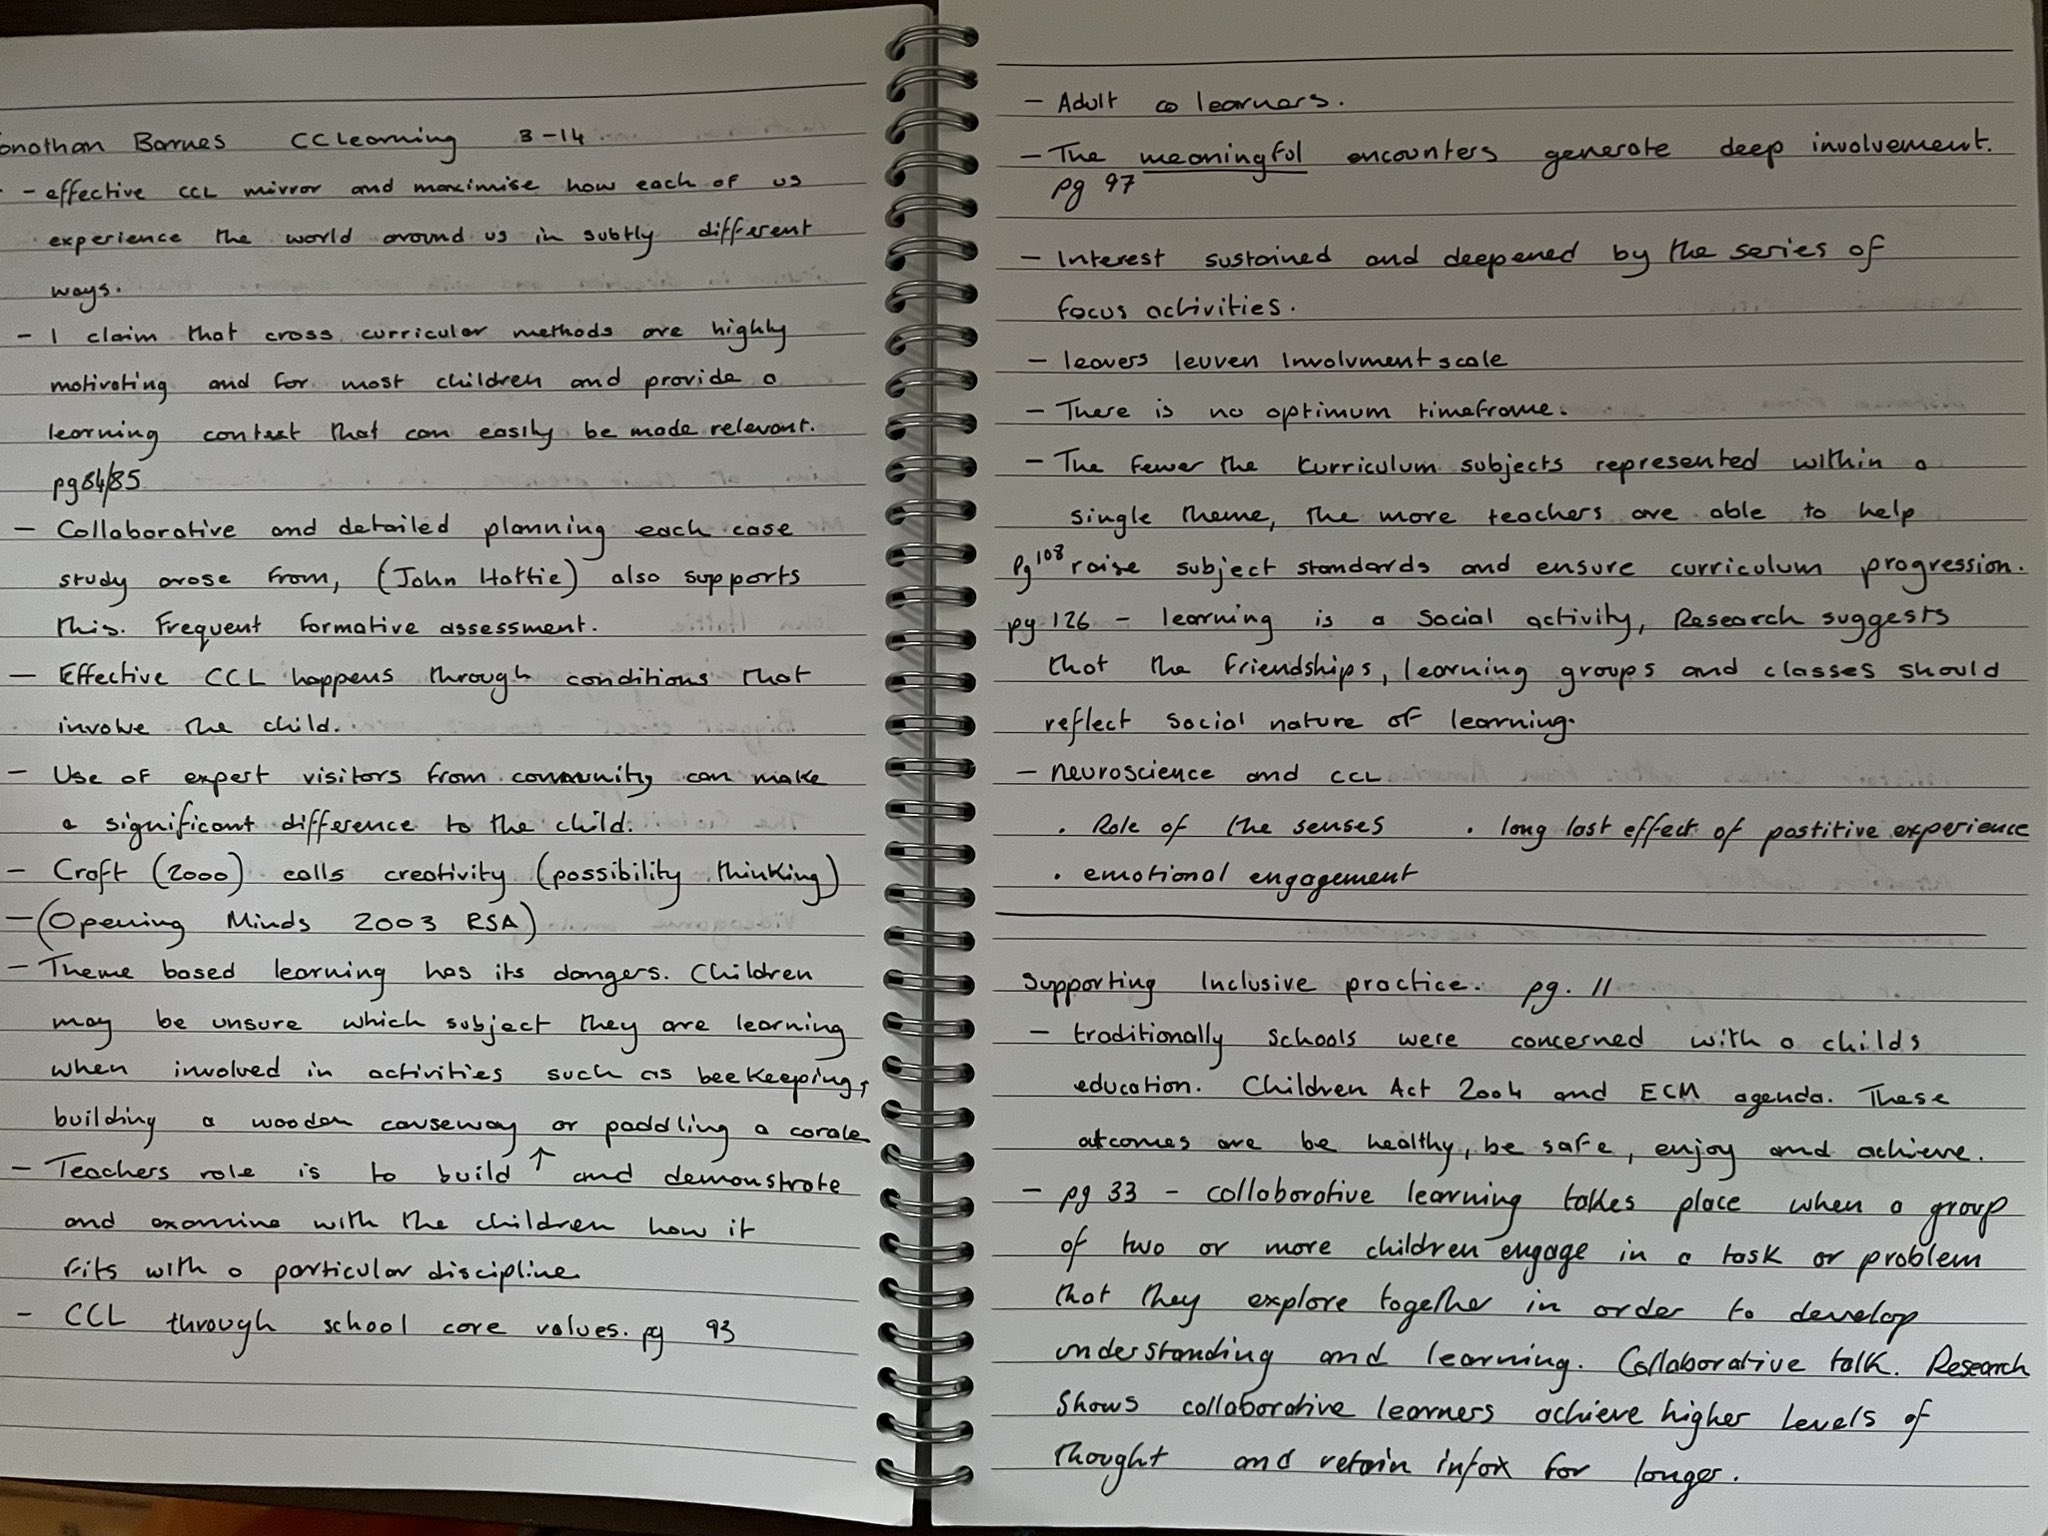 onathan Barnes CC Learning 3-14
- effective CCL mirror and maximise how each of us
experience the world around us in subtly different
ways.
- I claim that cross curricular methods are highly
motivating and for most children and provide a
learning context that can easily be made relevant.
pg84/85
- Collaborative and detailed planning each case
study arose from, (John Hattie) also supports
this. Frequent formative assessment.
- Effective CCL happens through conditions that
involve the child.
- Use of expert visitors from community can make
a significant difference to the child.
- Craft (2000) calls creativity (possibility thinking)
- (Opening Minds 2003 RSA)
- Theme based learning has its dangers. Children
may be unsure which subject they are learning
when involved in activities such as beekeeping,
building a wooden causeway or paddling a
- Teachers role is to build ↑ and demonstrate
and examine with the children how it
fits with a particular discipline.
- CCL through school core values. pg 93
- Adult co learners.
- The meaningful encounters generate deep involvement.
pg 97
- Interest sustained and deepened by the series of
focus activities.
- leavers leuven Involvment scale
- There is no optimum timeframe.
- The fewer the kurriculum subjects represented within a
single theme, the more teachers are able to help
Pg 108 raise subject standards and ensure curriculum progression.
pg 126 - learning is a social activity, Research suggests
that the friendships, learning groups and classes should
reflect social nature of learning.
- neuroscience and CCL
. Role of the senses . long last effect of postitive experience
. emotional engagement
Supporting Inclusive practice. pg. 11
- traditionally schools were concerned with a childs
education. Children Act 2004 and ECM agenda. These
outcomes are be healthy, be safe, enjoy and achieve.
- pg 33 - collaborative learning takes place when a group
of two or more children engage in a task or problem
that they explore together in order to develop
understanding and learning. Collaborative talk. Research
shows collaborative learners achieve higher levels of
thought and retain info for longer.